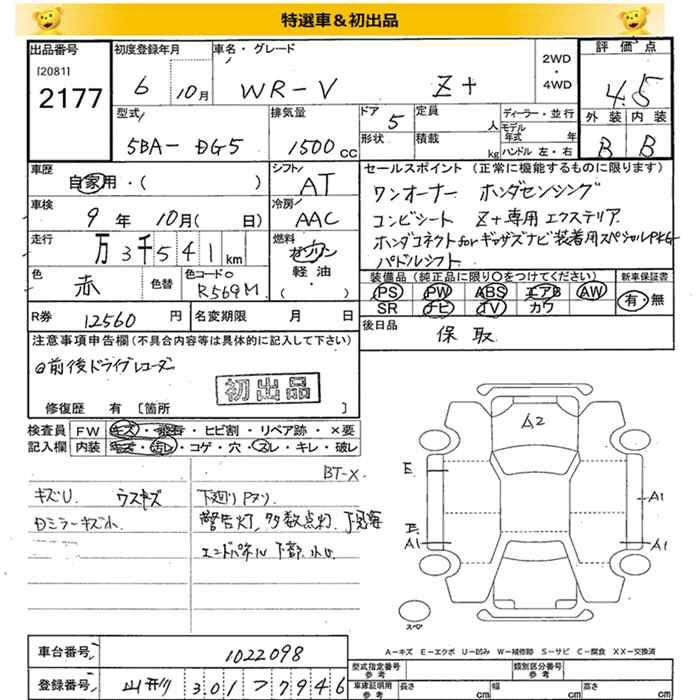 特選車&初出品
出品番号
[2081]
2177
初度登録年月
6 10月
車名・グレード
WR-V Z+
2WD
・
4WD
評価点
4.5
外装 内装
B B
型式
5BA- DG5
排気量
1500 CC
ドア 5
形状
定員 人
積載 kg
ディーラー・並行
モデル年式 年
ハンドル 左・右
車歴
自家用・( )
シフト
AT
車検
9年 10月( 日)
冷房
AAC
走行
万3千541km
燃料
ガソリン
軽油
( )
色
赤
色替
色コードO
R569M
R券 12560 円
名変期限 月 日
セールスポイント (正常に機能するものに限ります)
ワンオーナー ホンダセンシング
コンビシート Z+専用エクステリア
ホンダコネクトforギャザズナビ装着用スペシャルPKG
パドルシフト
装備品(純正品に限り○をつけてください)
PS PW ABS エアB AW
SR ナビ TV カワ
新車保証書
有・無
後日品
保 取
注意事項申告欄(不具合内容等は具体的に記入して下さい)
@前後ドライブレコーダー
初出品
修復歴 有 [箇所 ]
検査員
記入欄
FW キズ・飛石・ヒビ割・リペア跡・×要
内装 キズ・汚レ・コゲ・穴・スレ・キレ・破レ
BT-X
キズU. ウスキズ
Dミラーキズ小
下廻りPヌリ
警告灯、多数点灯.
エンドパネル下部.小U
A2
E
E
A1
A1
A1
スペア
A-キズ E-エクボ U-凹み W-補修跡 S-サビ C-腐食 XX-交換済
車台番号 1022098
登録番号 30177946
型式指定番号
参考
類別区分番号
参考
車庫証明用
参考
長さ cm 巾 cm 高さ cm